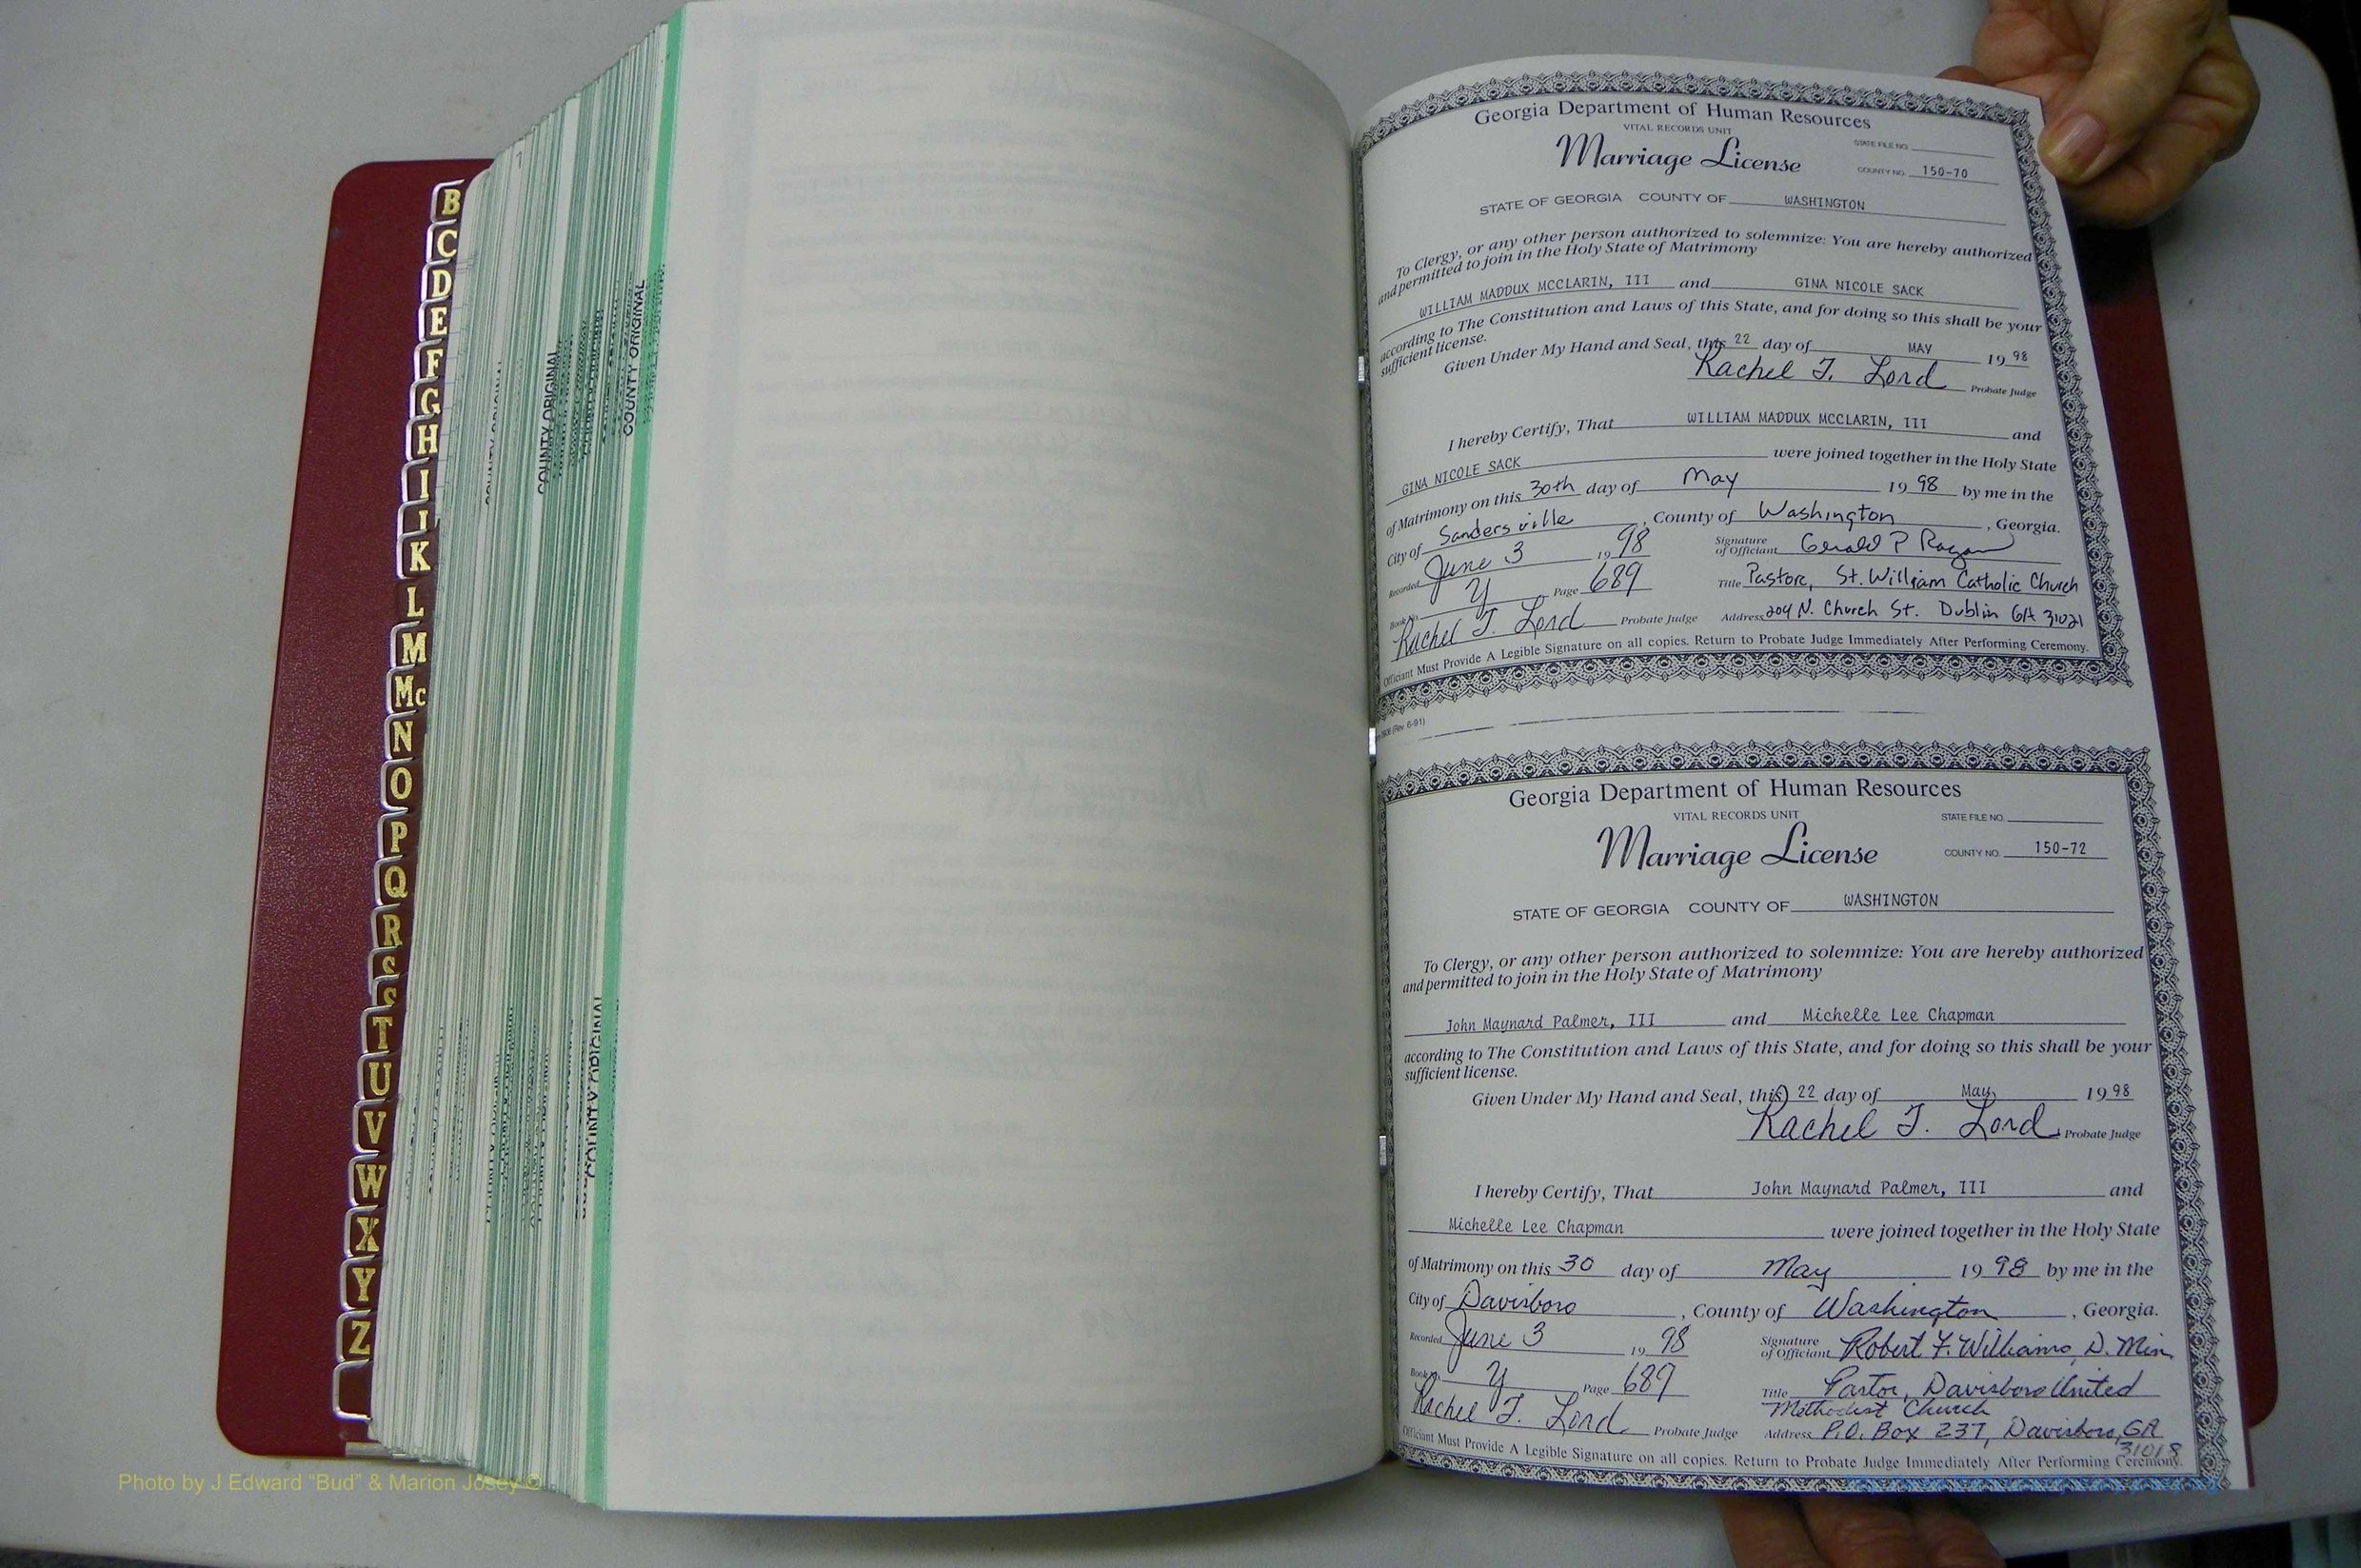 B
C
D
E
F
G
H
I
K
L
M
Mc
N
O
P
Q
R
S
T
U
V
W
X
Y
Z
COUNTY ORIGINAL
COUNTY ORIGINAL
COUNTY ORIGINAL
COUNTY ORIGINAL
Georgia Department of Human Resources
VITAL RECORDS UNIT
Marriage License
STATE FILE NO.
COUNTY NO. 150-70
STATE OF GEORGIA COUNTY OF WASHINGTON
To Clergy, or any other person authorized to solemnize: You are hereby authorized
and permitted to join in the Holy State of Matrimony
WILLIAM MADDUX MCCLARIN, III and GINA NICOLE SACK
according to The Constitution and Laws of this State, and for doing so this shall be your
sufficient license.
Given Under My Hand and Seal, this 22 day of MAY 19 98
Rachel T. Lord Probate Judge
I hereby Certify, That WILLIAM MADDUX MCCLARIN, III and
GINA NICOLE SACK were joined together in the Holy State
of Matrimony on this 30th day of May 19 98 by me in the
City of Sandersville, County of Washington, Georgia.
Recorded June 3 19 98 Signature of Officiant Gerald P Ragan
Book No. Y Page 689 Title Pastor, St. William Catholic Church
Rachel T. Lord Probate Judge Address 204 N. Church St. Dublin GA 31021
Officiant Must Provide A Legible Signature on all copies. Return to Probate Judge Immediately After Performing Ceremony.
(Rev. 6-91)
Georgia Department of Human Resources
VITAL RECORDS UNIT
Marriage License
STATE FILE NO.
COUNTY NO. 150-72
STATE OF GEORGIA COUNTY OF WASHINGTON
To Clergy, or any other person authorized to solemnize: You are hereby authorized
and permitted to join in the Holy State of Matrimony
John Maynard Palmer, III and Michelle Lee Chapman
according to The Constitution and Laws of this State, and for doing so this shall be your
sufficient license.
Given Under My Hand and Seal, this 22 day of May 19 98
Rachel T. Lord Probate Judge
I hereby Certify, That John Maynard Palmer, III and
Michelle Lee Chapman were joined together in the Holy State
of Matrimony on this 30 day of May 19 98 by me in the
City of Davisboro, County of Washington, Georgia.
Recorded June 3 19 98 Signature of Officiant Robert F. Williams, D. Min.
Book No. Y Page 689 Title Pastor, Davisboro United
Methodist Church
Rachel T. Lord Probate Judge Address P.O. Box 237, Davisboro, GA
31018
Officiant Must Provide A Legible Signature on all copies. Return to Probate Judge Immediately After Performing Ceremony.
Photo by J Edward "Bud" & Marion Josey ©